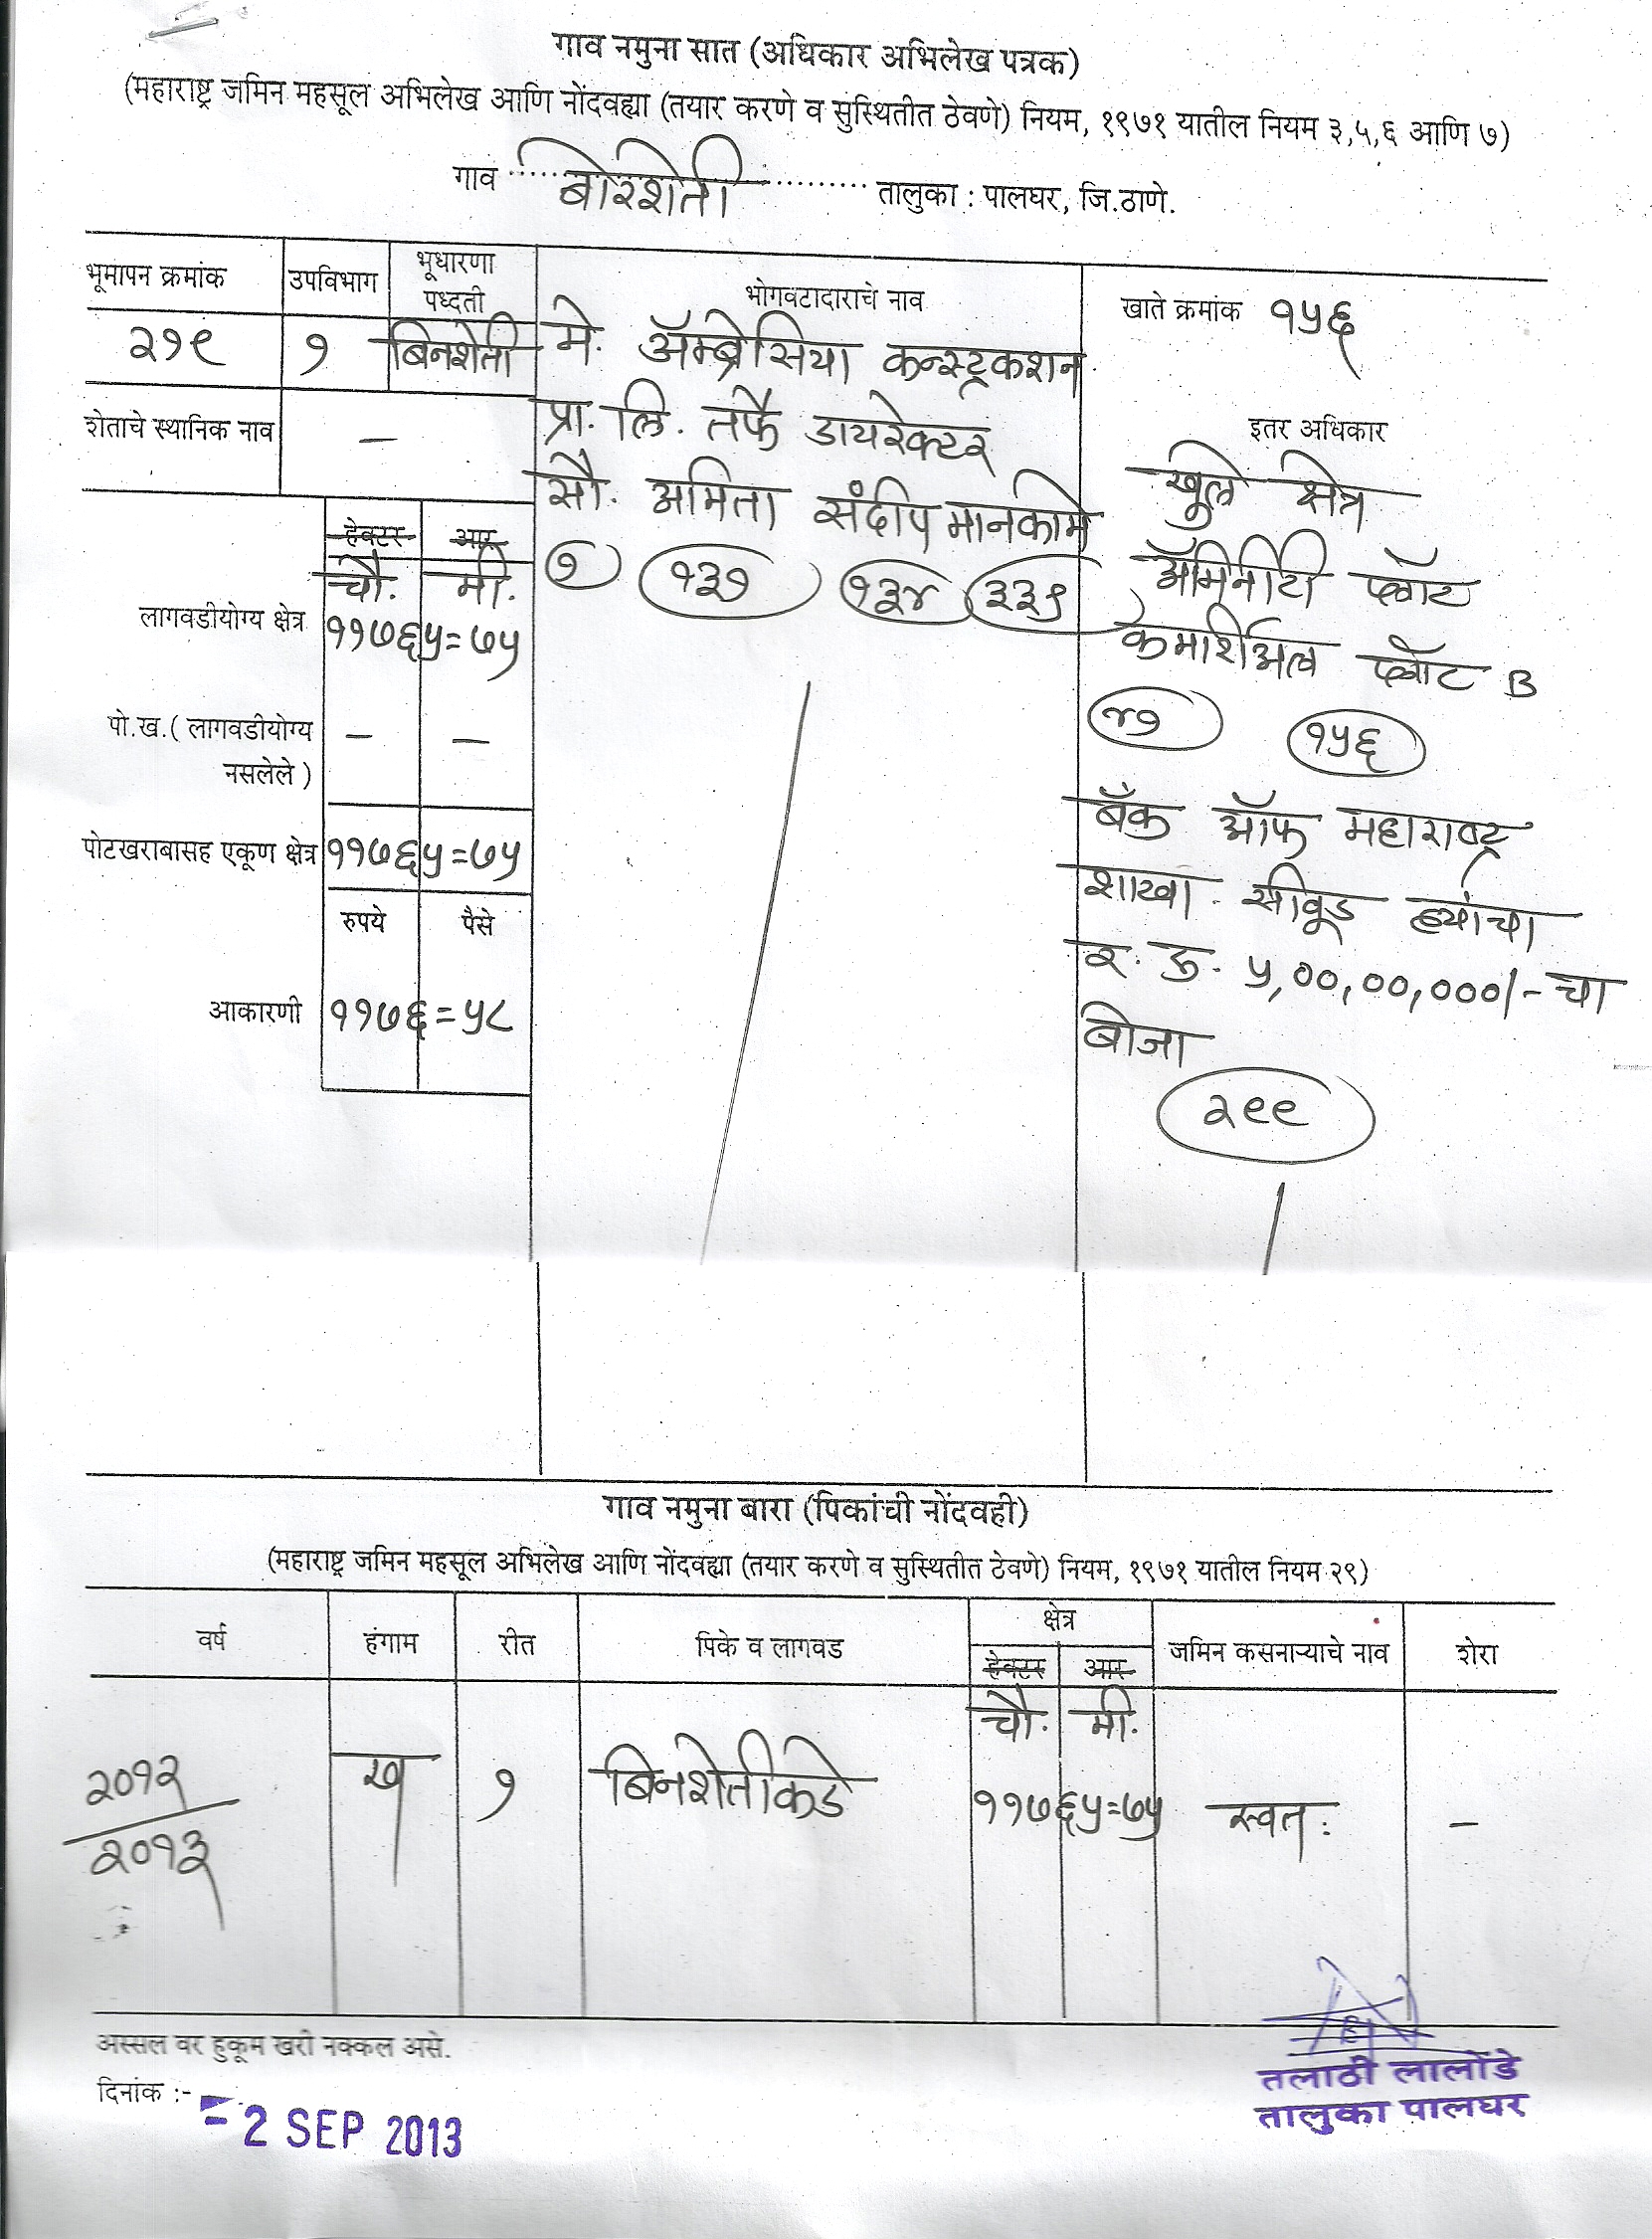 गाव नमुना सात (अधिकार अभिलेख पत्रक)
(महाराष्ट्र जमिन महसूल अभिलेख आणि नोंदवह्या (तयार करणे व सुस्थितीत ठेवणे) नियम, १९७१ यातील नियम ३,५,६ आणि ७)
गाव बोरशेती तालुका : पालघर, जि.ठाणे.
भूमापन क्रमांक उपविभाग भूधारणा पध्दती भोगवटादाराचे नाव खाते क्रमांक १५६
२१९ १ बिनशेती मे. ॲम्ब्रेसिया कन्स्ट्रकशन
प्रा. लि. तर्फे डायरेक्टर
शेताचे स्थानिक नाव — इतर अधिकार
सौ. अमिता संदीप मानकामे खुले क्षेत्र
हेक्टर आर
चौ. मी. १ १३७ १३४ ३३१ ॲमिनीटी प्लॉट
लागवडीयोग्य क्षेत्र ११७६५=७५ कमर्शिअल प्लॉट B
४७ १५६
पो.ख.( लागवडीयोग्य — —
नसलेले )
बँक ऑफ महाराष्ट्र
पोटखराबासह एकूण क्षेत्र ११७६५=७५ शाखा. सीवूड ह्यांचा
रुपये पैसे
र. रु. ५,००,००,०००/- चा
आकारणी ११७६=५८ बोजा
२९९
गाव नमुना बारा (पिकांची नोंदवही)
(महाराष्ट्र जमिन महसूल अभिलेख आणि नोंदवह्या (तयार करणे व सुस्थितीत ठेवणे) नियम, १९७१ यातील नियम २९)
वर्ष हंगाम रीत पिके व लागवड क्षेत्र जमिन कसनाऱ्याचे नाव शेरा
हेक्टर आर
चौ. मी.
२०१२ ख १ बिनशेतीकडे ११७६५=७५ स्वत: —
२०१३
अस्सल वर हुकूम खरी नक्कल असे.
दिनांक :- - 2 SEP 2013
तलाठी लालोंडे
तालुका पालघर